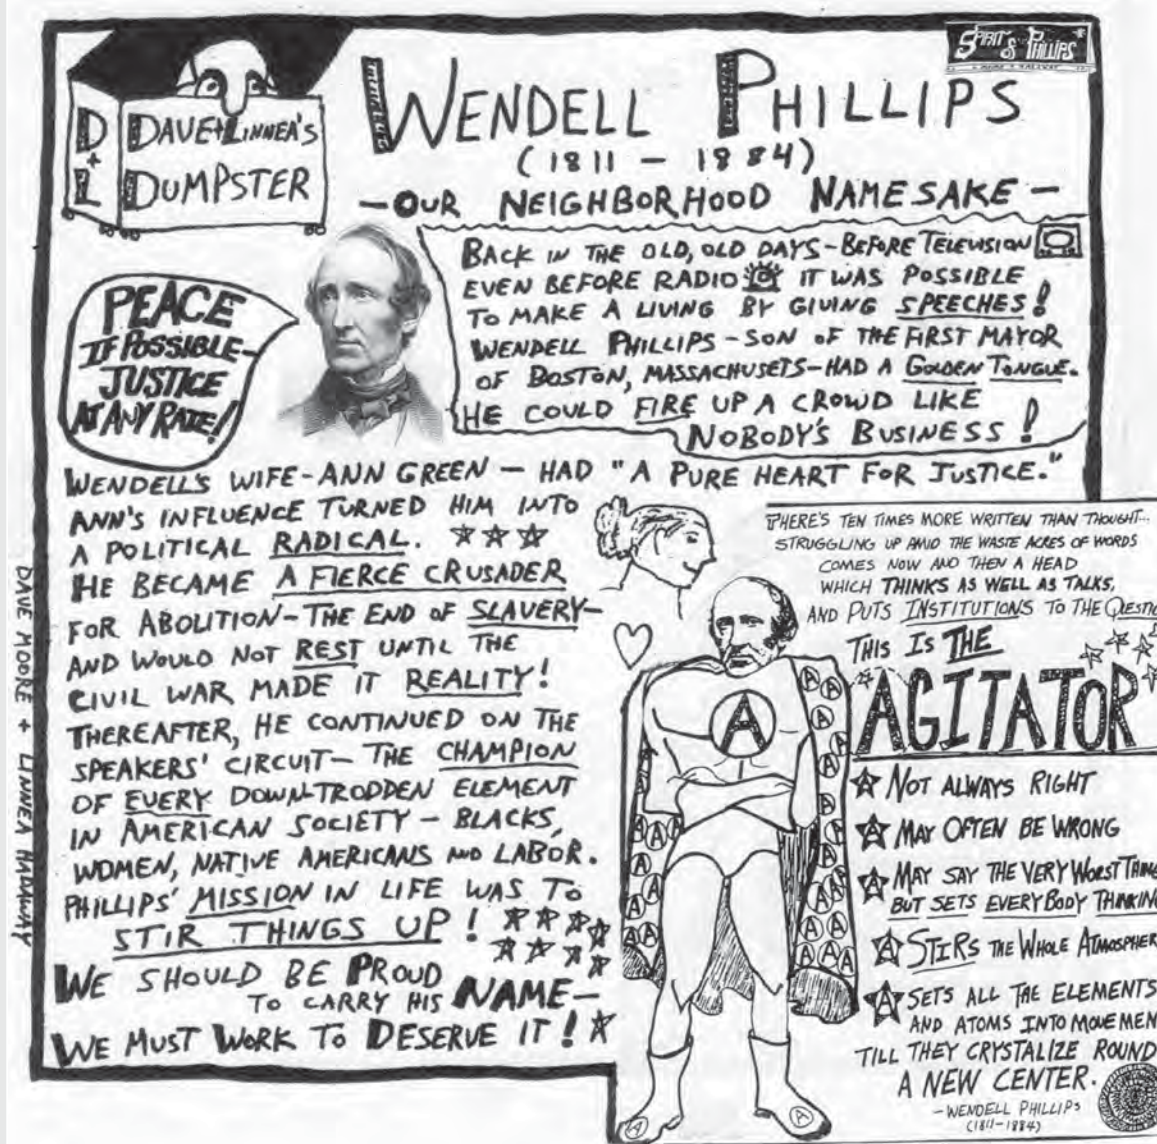 SPIRIT OF PHILLIPS
D + L
DAVE + LINNEA'S
DUMPSTER
WENDELL PHILLIPS
(1811 - 1884)
- OUR NEIGHBORHOOD NAMESAKE -
BACK IN THE OLD, OLD DAYS - BEFORE TELEVISION
EVEN BEFORE RADIO IT WAS POSSIBLE
TO MAKE A LIVING BY GIVING SPEECHES!
WENDELL PHILLIPS - SON OF THE FIRST MAYOR
OF BOSTON, MASSACHUSETS - HAD A GOLDEN TONGUE.
HE COULD FIRE UP A CROWD LIKE
NOBODY'S BUSINESS!
PEACE
IF POSSIBLE -
JUSTICE
AT ANY RATE!
WENDELL'S WIFE - ANN GREEN - HAD "A PURE HEART FOR JUSTICE."
ANN'S INFLUENCE TURNED HIM INTO
A POLITICAL RADICAL.
HE BECAME A FIERCE CRUSADER
FOR ABOLITION - THE END OF SLAVERY -
AND WOULD NOT REST UNTIL THE
CIVIL WAR MADE IT REALITY!
THEREAFTER, HE CONTINUED ON THE
SPEAKERS' CIRCUIT - THE CHAMPION
OF EVERY DOWNTRODDEN ELEMENT
IN AMERICAN SOCIETY - BLACKS,
WOMEN, NATIVE AMERICANS AND LABOR.
PHILLIPS' MISSION IN LIFE WAS TO
STIR THINGS UP!
WE SHOULD BE PROUD
TO CARRY HIS NAME -
WE MUST WORK TO DESERVE IT!
DAVE MOORE + LINNEA HADAWAY
THERE'S TEN TIMES MORE WRITTEN THAN THOUGHT...
STRUGGLING UP AMID THE WASTE ACRES OF WORDS
COMES NOW AND THEN A HEAD
WHICH THINKS AS WELL AS TALKS,
AND PUTS INSTITUTIONS TO THE QUESTIO
THIS IS THE
AGITATOR
A NOT ALWAYS RIGHT
A MAY OFTEN BE WRONG
A MAY SAY THE VERY WORST THING
BUT SETS EVERYBODY THINKING
A STIRS THE WHOLE ATMOSPHER
A SETS ALL THE ELEMENTS
AND ATOMS INTO MOVEMEN
TILL THEY CRYSTALIZE ROUND
A NEW CENTER.
- WENDELL PHILLIPS
(1811-1884)